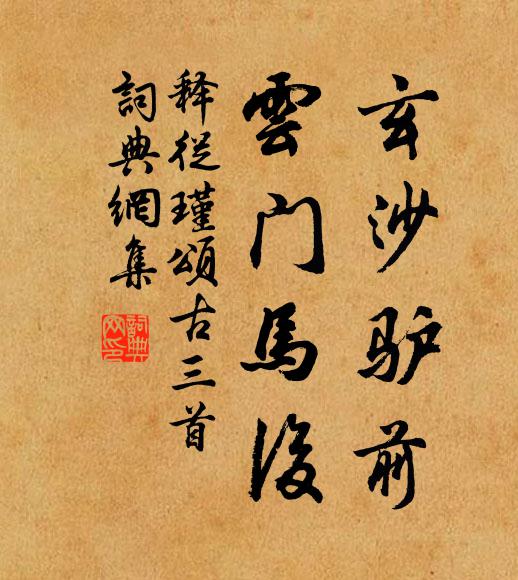 玄沙驴前
雲门馬後
释從瑾頌古三首
詞典網集
詞典網印